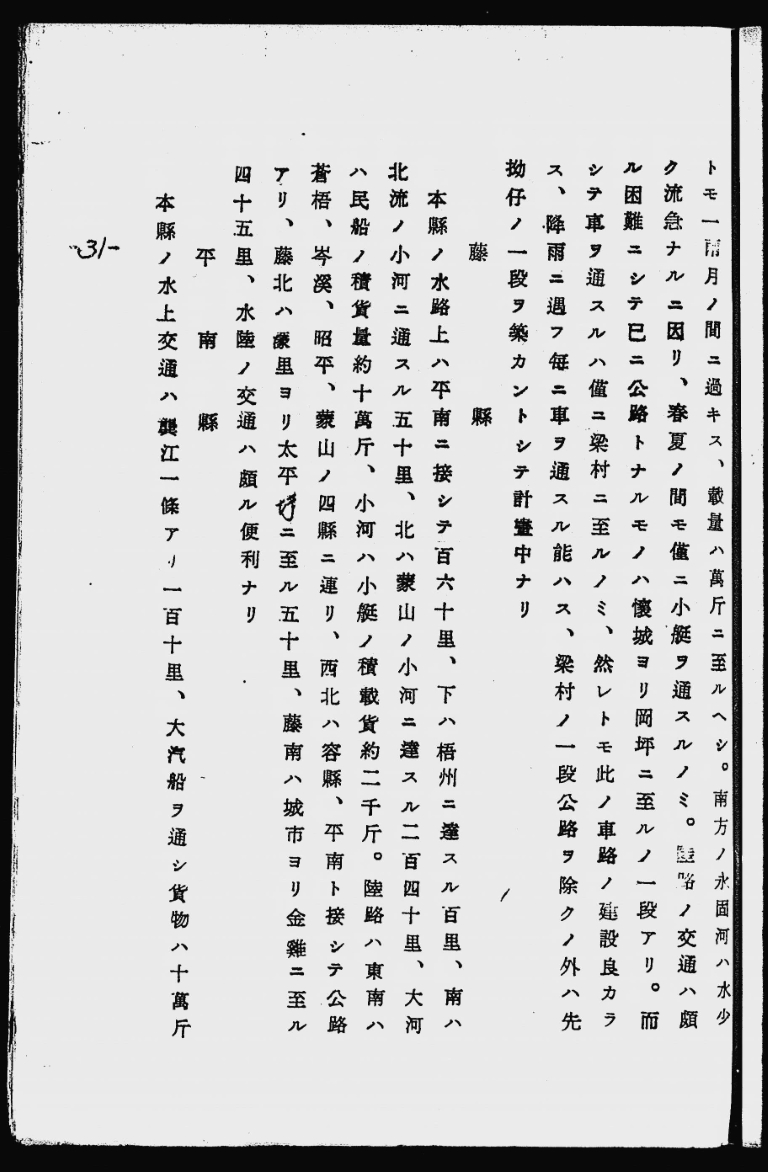 トモ一兩月ノ間ニ過キス、載量ハ萬斤ニ至ルヘシ。南方ノ永固河ハ水少
ク流急ナルニ因リ、春夏ノ間モ僅ニ小艇ヲ通スルノミ。陸路ノ交通ハ頗
ル困難ニシテ已ニ公路トナルモノハ懷城ヨリ岡坪ニ至ルノ一段アリ。而
シテ車ヲ通スルハ僅ニ梁村ニ至ルノミ、然レトモ此ノ車路ノ建設良カラ
ス、降雨ニ遇フ每ニ車ヲ通スル能ハス、梁村ノ一段公路ヲ除クノ外ハ先
拗仔ノ一段ヲ築カントシテ計畫中ナリ
藤縣
本縣ノ水路上ハ平南ニ接シテ百六十里、下ハ梧州ニ達スル百里、南ハ
北流ノ小河ニ通スル五十里、北ハ蒙山ノ小河ニ達スル二百四十里、大河
ハ民船ノ積貨量約十萬斤、小河ハ小艇ノ積載貨約二千斤。陸路ハ東南ハ
蒼梧、岑溪、昭平、蒙山ノ四縣ニ連リ、西北ハ容縣、平南ト接シテ公路
アリ、藤北ハ濛里ヨリ太平ニ至ル五十里、藤南ハ城市ヨリ金雞ニ至ル
四十五里、水陸ノ交通ハ頗ル便利ナリ
平南縣
本縣ノ水上交通ハ龔江一條アリ一百十里、大汽船ヲ通シ貨物ハ十萬斤
-31-